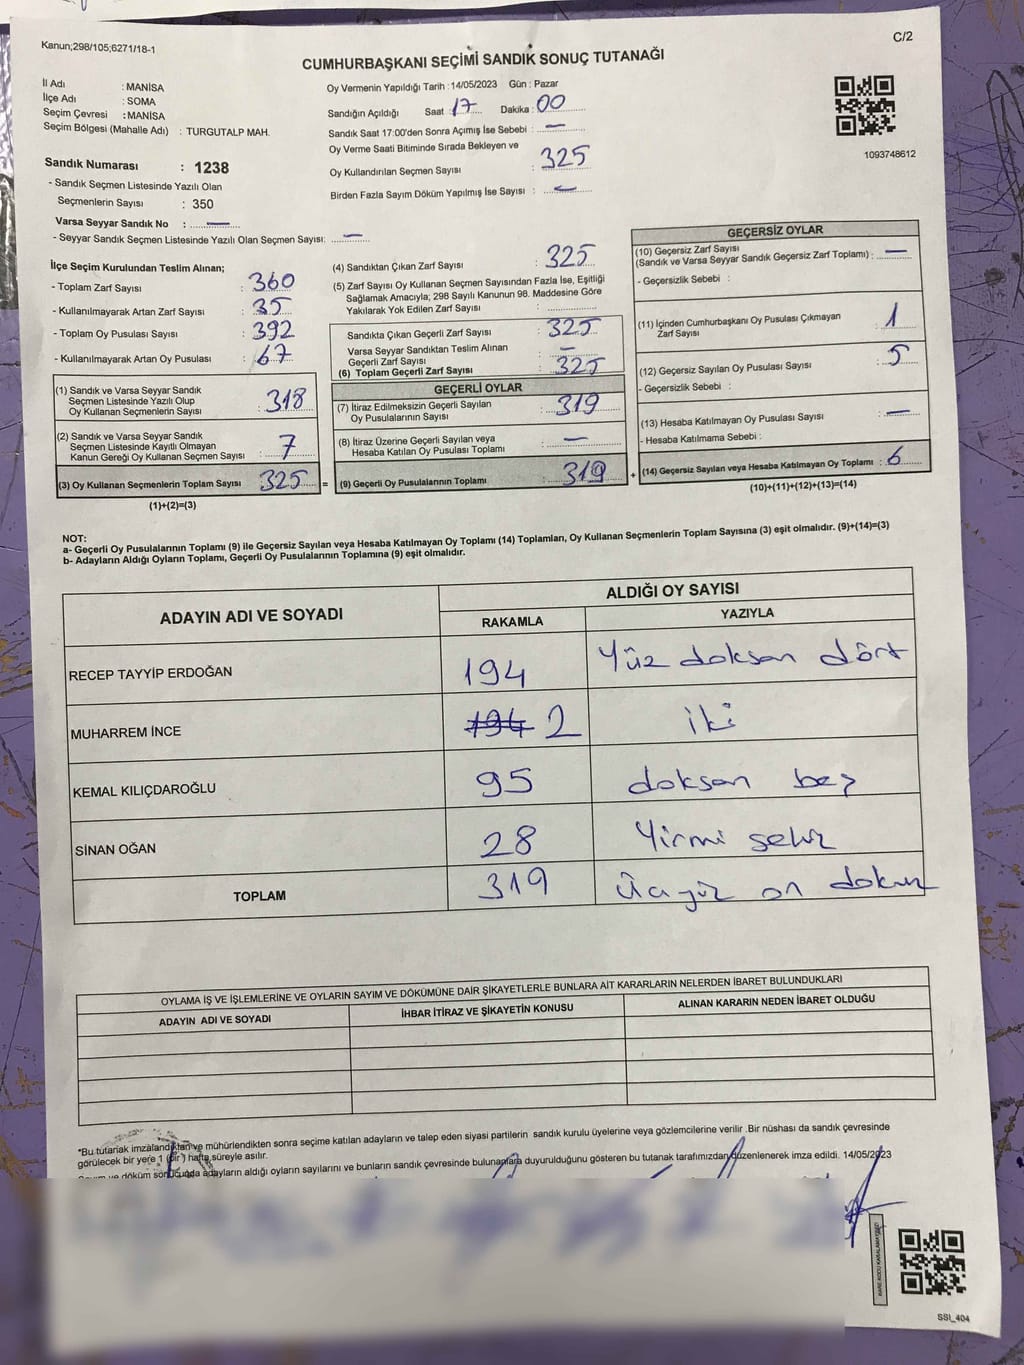 Kanun;298/105;6271/18-1
C/2
CUMHURBAŞKANI SEÇİMİ SANDIK SONUÇ TUTANAĞI
İl Adı : MANİSA
İlçe Adı : SOMA
Seçim Çevresi : MANİSA
Seçim Bölgesi (Mahalle Adı) : TURGUTALP MAH.
Oy Vermenin Yapıldığı Tarih : 14/05/2023 Gün : Pazar
Sandığın Açıldığı Saat : 17 Dakika : 00
Sandık Saat 17:00'den Sonra Açımış İse Sebebi : —
Oy Verme Saati Bitiminde Sırada Bekleyen ve
Oy Kullandırılan Seçmen Sayısı : 325
Birden Fazla Sayım Döküm Yapılmış İse Sayısı : —
1093748612
Sandık Numarası : 1238
- Sandık Seçmen Listesinde Yazılı Olan
Seçmenlerin Sayısı : 350
Varsa Seyyar Sandık No : —
- Seyyar Sandık Seçmen Listesinde Yazılı Olan Seçmen Sayısı: —
İlçe Seçim Kurulundan Teslim Alınan;
- Toplam Zarf Sayısı : 360
- Kullanılmayarak Artan Zarf Sayısı : 35
- Toplam Oy Pusulası Sayısı : 392
- Kullanılmayarak Artan Oy Pusulası : 67
(1) Sandık ve Varsa Seyyar Sandık
Seçmen Listesinde Yazılı Olup
Oy Kullanan Seçmenlerin Sayısı : 318
(2) Sandık ve Varsa Seyyar Sandık
Seçmen Listesinde Kayıtlı Olmayan
Kanun Gereği Oy Kullanan Seçmen Sayısı : 7
(3) Oy Kullanan Seçmenlerin Toplam Sayısı 325 =
(1)+(2)=(3)
(4) Sandıktan Çıkan Zarf Sayısı : 325
(5) Zarf Sayısı Oy Kullanan Seçmen Sayısından Fazla İse, Eşitliği
Sağlamak Amacıyla; 298 Sayılı Kanunun 98. Maddesine Göre
Yakılarak Yok Edilen Zarf Sayısı :
Sandıkta Çıkan Geçerli Zarf Sayısı : 325
Varsa Seyyar Sandıktan Teslim Alınan
Geçerli Zarf Sayısı : —
(6) Toplam Geçerli Zarf Sayısı : 325
GEÇERLİ OYLAR
(7) İtiraz Edilmeksizin Geçerli Sayılan
Oy Pusulalarının Sayısı : 319
(8) İtiraz Üzerine Geçerli Sayılan veya
Hesaba Katılan Oy Pusulası Toplamı : —
(9) Geçerli Oy Pusulalarının Toplamı 319 +
GEÇERSİZ OYLAR
(10) Geçersiz Zarf Sayısı
(Sandık ve Varsa Seyyar Sandık Geçersiz Zarf Toplamı) : —
- Geçersizlik Sebebi :
(11) İçinden Cumhurbaşkanı Oy Pusulası Çıkmayan
Zarf Sayısı : 1
(12) Geçersiz Sayılan Oy Pusulası Sayısı : 5
- Geçersizlik Sebebi :
(13) Hesaba Katılmayan Oy Pusulası Sayısı : —
- Hesaba Katılmama Sebebi :
(14) Geçersiz Sayılan veya Hesaba Katılmayan Oy Toplamı : 6
(10)+(11)+(12)+(13)=(14)
NOT:
a- Geçerli Oy Pusulalarının Toplamı (9) ile Geçersiz Sayılan veya Hesaba Katılmayan Oy Toplamı (14) Toplamları, Oy Kullanan Seçmenlerin Toplam Sayısına (3) eşit olmalıdır. (9)+(14)=(3)
b- Adayların Aldığı Oyların Toplamı, Geçerli Oy Pusulalarının Toplamına (9) eşit olmalıdır.
ADAYIN ADI VE SOYADI ALDIĞI OY SAYISI
RAKAMLA YAZIYLA
RECEP TAYYİP ERDOĞAN 194 Yüz doksan dört
MUHARREM İNCE 194 2 iki
KEMAL KILIÇDAROĞLU 95 doksan beş
SİNAN OĞAN 28 Yirmi sekiz
TOPLAM 319 Üçyüz on dokuz
OYLAMA İŞ VE İŞLEMLERİNE VE OYLARIN SAYIM VE DÖKÜMÜNE DAİR ŞİKAYETLERLE BUNLARA AİT KARARLARIN NELERDEN İBARET BULUNDUKLARI
ADAYIN ADI VE SOYADI İHBAR İTİRAZ VE ŞİKAYETİN KONUSU ALINAN KARARIN NEDEN İBARET OLDUĞU
*Bu tutanak imzalandıktan ve mühürlendikten sonra seçime katılan adayların ve talep eden siyasi partilerin sandık kurulu üyelerine veya gözlemcilerine verilir .Bir nüshası da sandık çevresinde
görülecek bir yere 1 (bir ) hafta süreyle asılır.
Sayım ve döküm sonucunda adayların aldığı oyların sayılarını ve bunların sandık çevresinde bulunanlara duyurulduğunu gösteren bu tutanak tarafımızdan düzenlenerek imza edildi. 14/05/2023
SSI_404